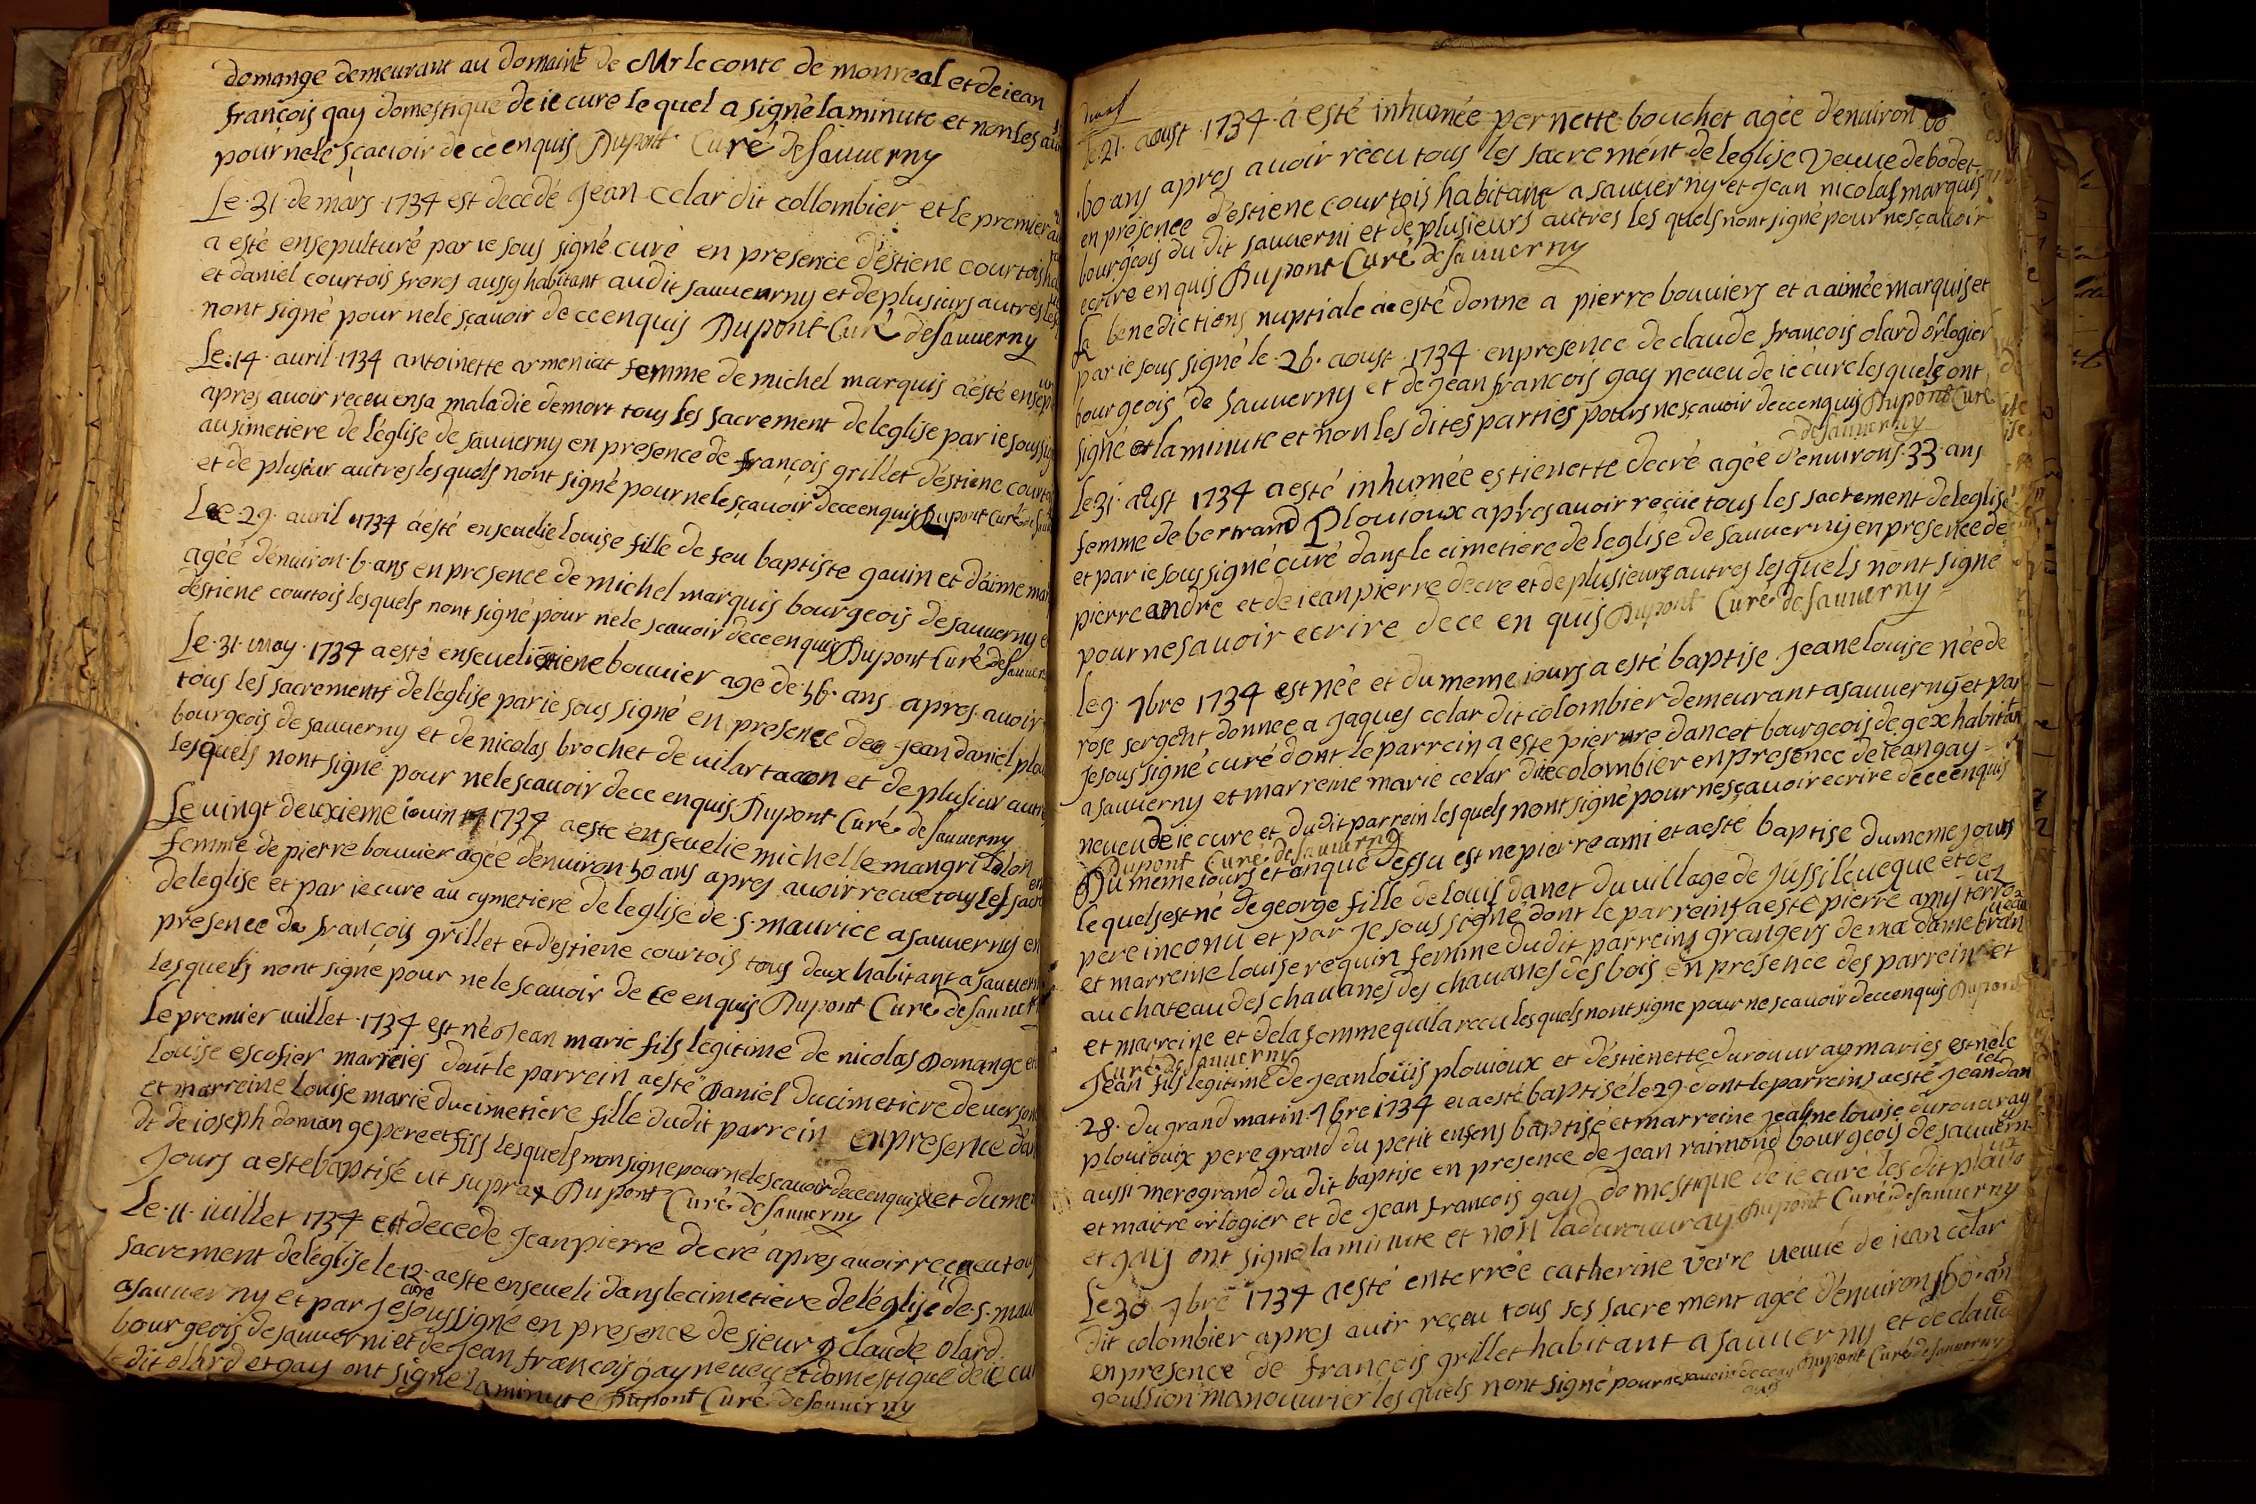 domange demeurant au domaine de Mr le conte de monreal et de iean
françois gay domestique de ie cure lequel a signé la minute et non les au
pour ne le sçauoir de ce enquis Dupont Curé de sauuerny
Le 31 de mars 1734 est decedé jean celar dit collombier et le premier
a esté ensepulturé par ie sous signé curé en presence d'estiene courtois
et daniel courtois freres aussy habitant audit sauuernry et de plusiurs autres les
nont signé pour ne le sçauoir de ce enquis Dupont Curé de sauuerny
Le 14 auril 1734 antoinette armeniat femme de michel marquis a esté ensep
apres auoir receu en sa maladie de mort tous les sacrement de leglise par ie sous sig
au simetiere de l'eglise de sauuerny en presence de françois grillet d'estiene courto
et de plusiur autres lesquels nont signé pour ne le sçauoir de ce enquis Dupont Curé de sau
Le 29 auril 1734 a esté enseuelie louise fille de feu baptiste gauin et d'aime mar
agée d'enuiron 6 ans en presence de michel marquis bourgeois de sauuerny e
d'estiene courtois lesquels nont signé pour ne le scauoir de ce enquis Dupont Curé de sauuer
Le 31 may 1734 a esté enseueli estiene bouuier age de 56 ans apres auoir
tous les sacrements de l'eglise par ie sous signé en presence de jean daniel plou
bourgeois de sauuerny et de nicolas brochet de uilartacon et de plusiur autre
lesquels nont signé pour ne le scauoir de ce enquis Dupont Curé de sauuerny
Le uingt deuxieme iouin 1734 a este enseuelie michelle mangrilolon
femme de pierre bouuier agée d'enuiron 50 ans apres auoir recue tous les sacre
de leglise et par ie cure au cymetiere de leglise de s. maurice a sauuerny en
presence de françois grillet et d'estiene courtois tous deux habitant a sauuern
lesquels nont signé pour ne le scauoir de ce enquis Dupont Curé de sauuern
Le premier iuillet 1734 est né jean marie fils legitime de nicolas Domange et
Louise escofier marieies dont le parrein a esté Daniel ducimetiere de uerson
et marreine Louise marie ducimetiere fille dudit parrein en presence d'an
dt de ioseph domange pere et fils lesquels non signe pour ne le scauoir de ce enquis et du me
jours a este baptisé ut supra Dupont Curé de sauuerny
Le 11 iuillet 1734 est decede jean pierre decré apres auoir receu tous
sacrement de l'eglise le 12 a este enseueli dans le cimetiere de l'église de s. mau
a sauuerny et par je sous signé curé en presence de sieur claude olard
bourgeois de sauuerni et de jean françois gay neueu et domestique de ie cu
le dit olard et gay ont signé la minute Dupont Curé de sauuerny
Le 21 aoust 1734 a esté inhumée pernette bouchet agée d'enuiron 60
60 ans apres auoir recu tous les sacrement de leglise veuue de bodet
en presence d'estiene courtois habitant a sauuerny et jean nicolas marquis
bourgeois du dit sauuerni et de plusieurs autres les quels nont signé pour ne sçauoir
ecrire enquis Dupont Curé de sauuerny
La benedictions nuptiale a esté donne a pierre bouuiers et a aimée marquis et
par ie sous signé le 26 aoust 1734 en presence de claude françois olard orlogier
bourgeois de sauuerny et de jean françois gay neueu de ie curé lesquels ont
signé la minute et non les dites parties pours ne sçauoir de ce enquis Dupont Curé
de sauuerny
Le 31 aust 1734 a esté inhumée estienette decré agée d'enuirons 33 ans
femme de bertrand Plouioux apres auoir reçue tous les sacrement de leglise
et par ie sous signé curé dans le cimetiere de leglise de sauuerny en presence de
pierre andre et de iean pierre decre et de plusieurs autres lesquels nont signé
pour ne sauoir ecrire de ce en quis Dupont Curé de sauuerny
Le 9 7bre 1734 est née et du meme iours a esté baptise jeane louise née de
rose sergent donnee a jaques celar dit colombier demeurant a sauuerny et par
je sous signé curé dont le parrein a este pierre dancet bourgeois de gex habitan
a sauuerny et marreine marie celar dite colombier en presence de iean gay
neueu de ie cure et du dit parrein lesquels nont signé pour ne sçauoir ecrire de ce enquis
Dupont Curé de sauuerny
Du meme iours et an que dessu est ne pierre ami et a esté baptise du meme jours
le quels est né de george fille de louis danet du uillage de jussi l'eueque et de
pere inconu et par je sous signé dont le parreins a este pierre amy terro
et marreine louise requin femme dudit parreins grangers de madame bran
au chateau des chauanes des chauanes des bois en presence des parrein et
et marreine et de la femme qui la recu lesquels nont signe pour ne scauoir de ce enquis Dupont
Curé de sauuerny
Jean fils legitime de jean louis plouioux et d'estienette durouuray maries est né le
28 du grand matin 7bre 1734 et a esté baptise le 29 dont le parreins a esté jean daniel
plouiouix pere grand du petit enfens baptisé et marreine jeanne louise durouuray
aussi mere grand du dit baptise en presence de jean raimond bourgeois de sauuerny
et maitre orlogier et de jean françois gay domestique de ie curé les dit plouioux
et gay ont signé la minute et non la durouuray Dupont Curé de sauuerny
Le 30 7bre 1734 a esté enterrée catherine verre ueuue de iean celar
dit colombier apres auir reçeu tous ses sacrement agée d'enuirons 60 ans
en presence de françois grillet habitant a sauuerny et de claude
goussion manouurier lesquels nont signé pour ne sauoir de ce enquis Dupont Curé de sauuerny